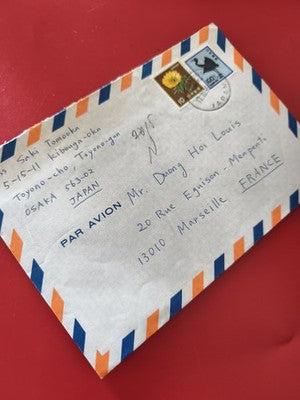 Saki Tomooka
5-15-11 Kibouga-oka
Toyono-cho, Toyono-gun
OSAKA 563-02
JAPAN
PAR AVION
Mr. Duong Hoi Louis
20 Rue Eguison - Menpenti
13010 Marseille
FRANCE
10
JAPAN